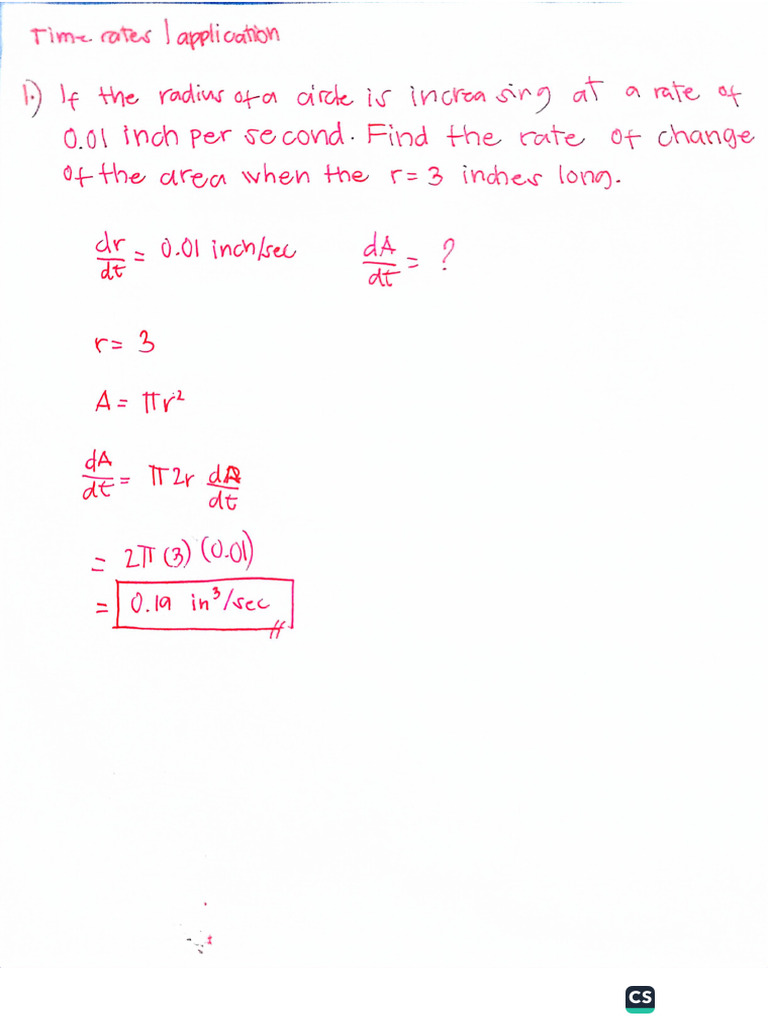 Time rates | application
1.) If the radius of a circle is increasing at a rate of
0.01 inch per second. Find the rate of change
of the area when the r = 3 inches long.
dr/dt = 0.01 inch/sec dA/dt = ?
r = 3
A = πr²
dA/dt = π2r dR/dt
= 2π (3) (0.01)
= 0.19 in³/sec
CS